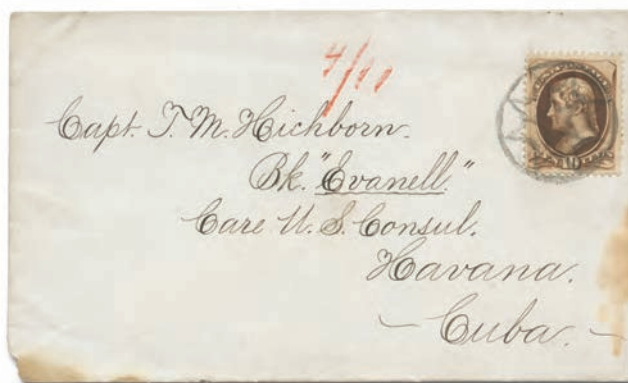 4/11
Capt. T. M. Hichborn.
Bk. "Evanell."
Care U. S. Consul.
Havana.
Cuba.